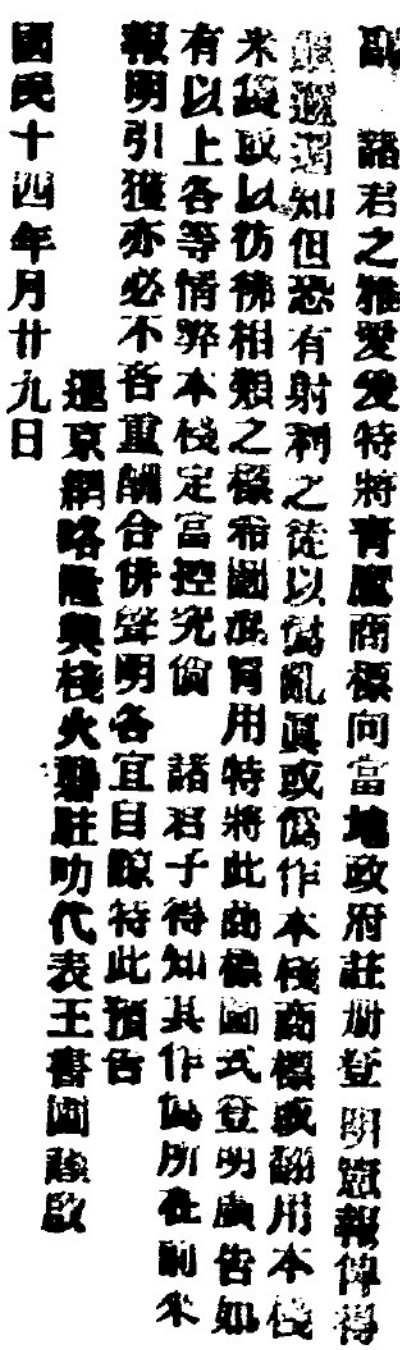 副 諸君之雅愛爰特將青鷹商標向當地政府註册登明憲報俾得
週知但恐有射利之徒以僞亂眞或僞作本棧商標或翻用本棧
米袋或以彷彿相類之標希圖混冐用特將此商標圖式登明廣告如
有以上各等情弊本棧定當控究倘 諸君子得知其作僞所在前來
報明引獲亦必不吝重酬合併聲明各宜自諒特此預告
暹京網略隆興棧火礱駐叻代表王書圖謹啟
國民十四年月廿九日